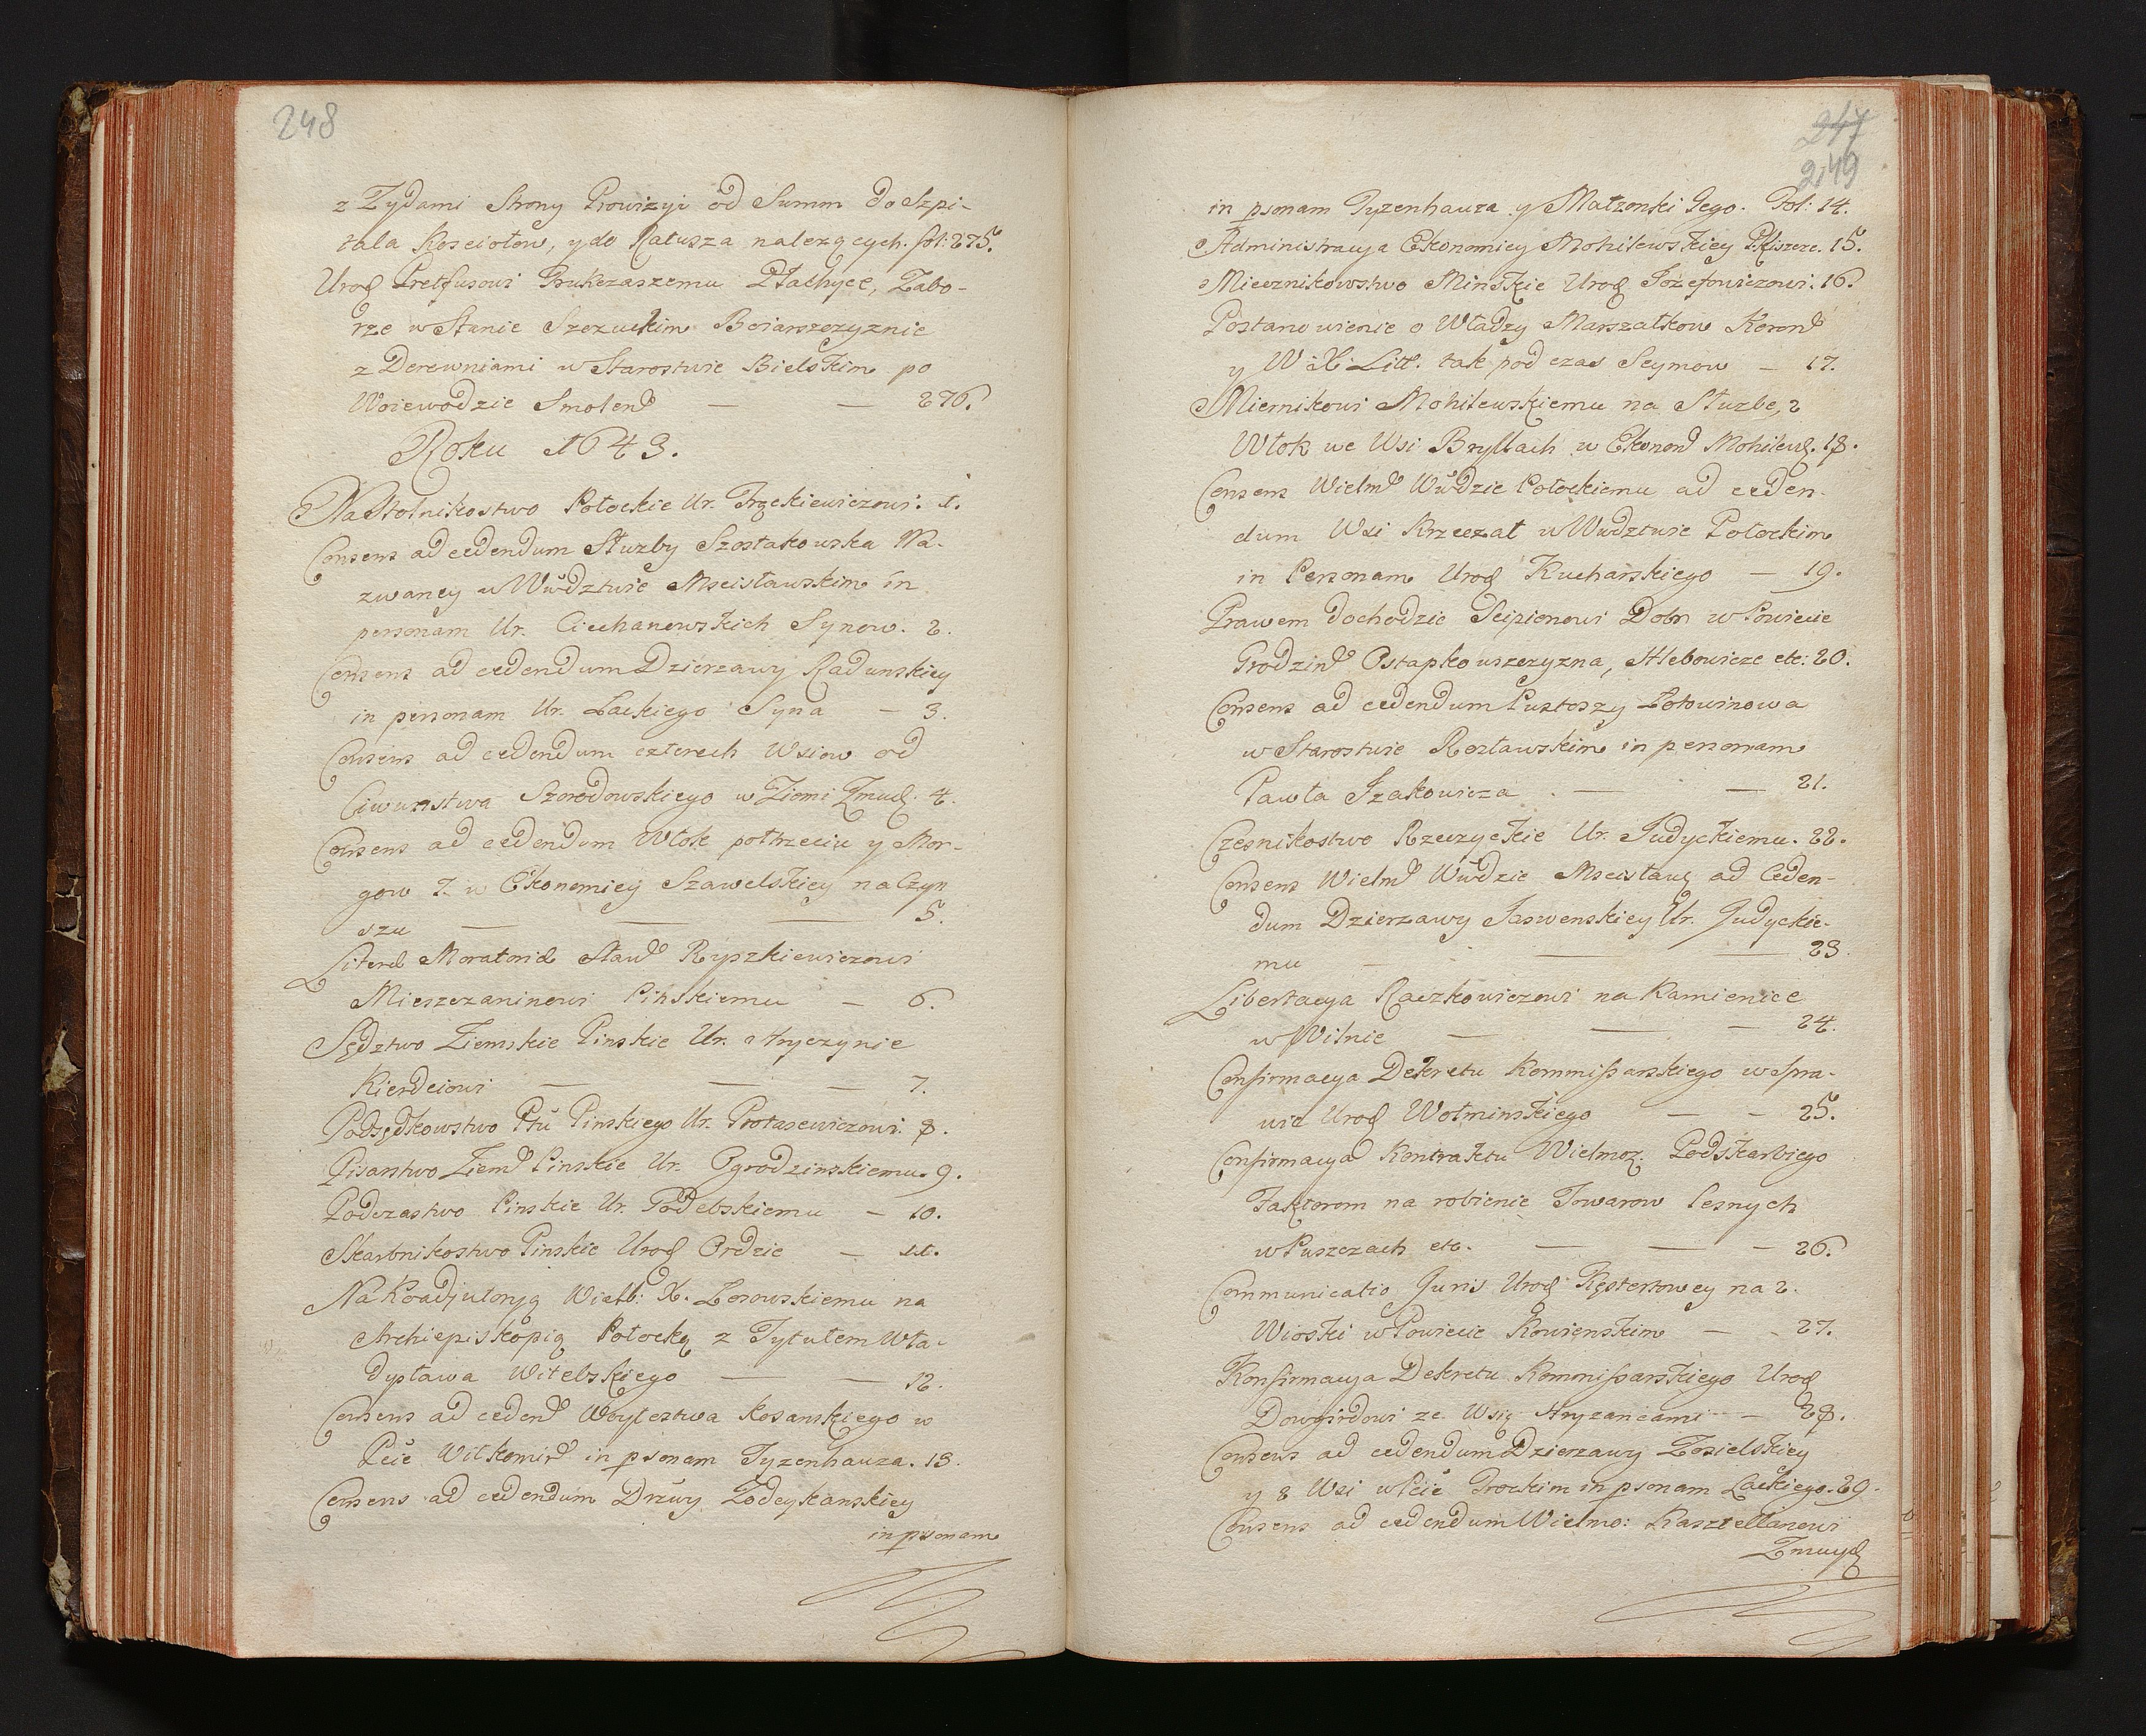 248
z Zydami Strony Prowizyi od Summ do Szpi-
tala Kosciołow, y do Ratusza nalezących. fol: 275.
Urod Pretfusowi Grukczaszemu Płachyce, Zabo-
rze w Stanie Szczuckim Boiarszczyznie
z Derewniami w Starostwie Bielskim po
Woiewodzie Smolend — — 276.
Roku 1643.
Na Stolnikostwo Połockie Ur. Frąckiewiczowi. 1.
Consens ad cedendum Służby Szostakowska Na-
zwaney w Wwdztwie Mscisławskim in
personam Ur. Ciechanowskich Synow. 2.
Consens ad cedendum Dzierzawy Radunskiey
in personam Ur. Lackiego Syna — 3.
Consens ad cedendum czterech Wsiow od
Ciwunstwa Szorodowskiego w Ziemi Zmud. 4.
Consens ad cedendum Włok pottrzeciu y Mor-
gow 7. w Ekonomiey Szawelskiey na Czyn
szu — — — 5.
Literæ Moratoriæ Sław Ryszkiewiczowi
Mieszczaninowi Pinskiemu — 6.
Sędztwo Ziemskie Pinskie Ur. Hryczynie
Kierdeiowi — — — 7.
Podsędkowstwo Ptu Pinskiego Ur. Protasewiczowi. 8.
Pisarstwo Ziemd Pinskie Ur. Ogrodzinskiemu. 9.
Podczastwo Pinskie Ur. Godebskiemu — 10.
Skarbnikostwo Pinskie Urod Ordzie — 11.
Na Koadjutoryą Wieleb: X. Losowskiemu na
Archiepiskopią Połocką z Tytułem Wła-
dysława Witebskiego — — 12.
Consens ad cedend Woytostwa Kosanskiego w
Pcie Wilkomird in psonam Tyzenhauza. 13.
Consens ad cedendum Drzwy Zodeykanskiey
in psonam
247
249
in psonam Tyzenhauza y Małzonki Jego. Fol: 14.
Administracya Ekonomiey Mohilewskiey P. Riszere. 15.
Miecznikowstwo Minskie Urod Jozefowiczowi. 16.
Postanowienie o Władzy Marszałkow Korond
y W: X: Litt. tak podczas Seymow — 17.
Miernikowi Mohilewskiemu na Służbę, 2
Włok we Wsi Bryllach w Ekonomd Mohilews. 18.
Consens Wielmd Wwdzie Połockiemu ad ceden-
dum Wsi Krzeczat w Wwdztwie Połockim
in Personam Urod Kucharskiego — 19.
Prawem dochodzic Scipionowi Dobr w Powiecie
Grodzind Ostapkowszczyzna, Hlebowicze etc: 20.
Consens ad cedendum Pustoszy Zołowinowa
w Starostwie Rosławskim in personam
Pawła Izakowicza. — — 21.
Czesnikostwo Rzeczyckie Ur. Judyckiemu. 22.
Consens Wielmd Wwdzie Mscisławs ad Ceden-
dum Dzierzawy Jaswonskiey Ur. Judyckie-
mu — — — 23.
Libertacya Raczkowiczowi na Kamienice
w Wilnie — — — 24.
Confirmacya Dekretu Kommissarskiego w Spra-
wie Urod Wołminskiego — — 25.
Confirmacya Kontraktu Wielmoz. Podskarbiego
Faktorom na robienie Towarow lesnych
w Puszczach etc. — — — 26.
Communicatio Juris Urod Kęstortowey na 2.
Wioski w Powiecie Kowienskim — - 27.
Konfirmacya Dekretu Kommissarskiego Urod
Dowgirdowi ze Wsią Hryzancami — 28.
Consens ad cedendum Dzierzawy Zosielskiey
y 2 Wsi w Pcie Trockim in psonam Lackiego. 29.
Consens ad cedendum Wielmo: Kasztellanowi
Zmuyd